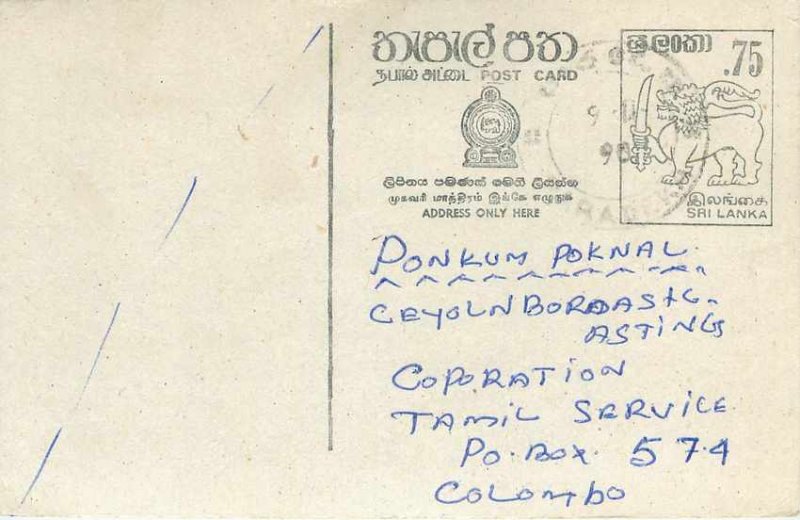 තැපැල් පත
தபால் அட்டை POST CARD
ලිපිනය පමණක් මෙහි ලියන්න
முகவரி மாத்திரம் இங்கே எழுதுக
ADDRESS ONLY HERE
ශ්‍රී ලංකා
.75
இலங்கை
SRI LANKA
9
90
PONKUM POKNAL
CEYOLN BORDASTG-
ASTINGS
COPORATION
TAMIL SERVICE
PO.BOX. 574
COLOMBO